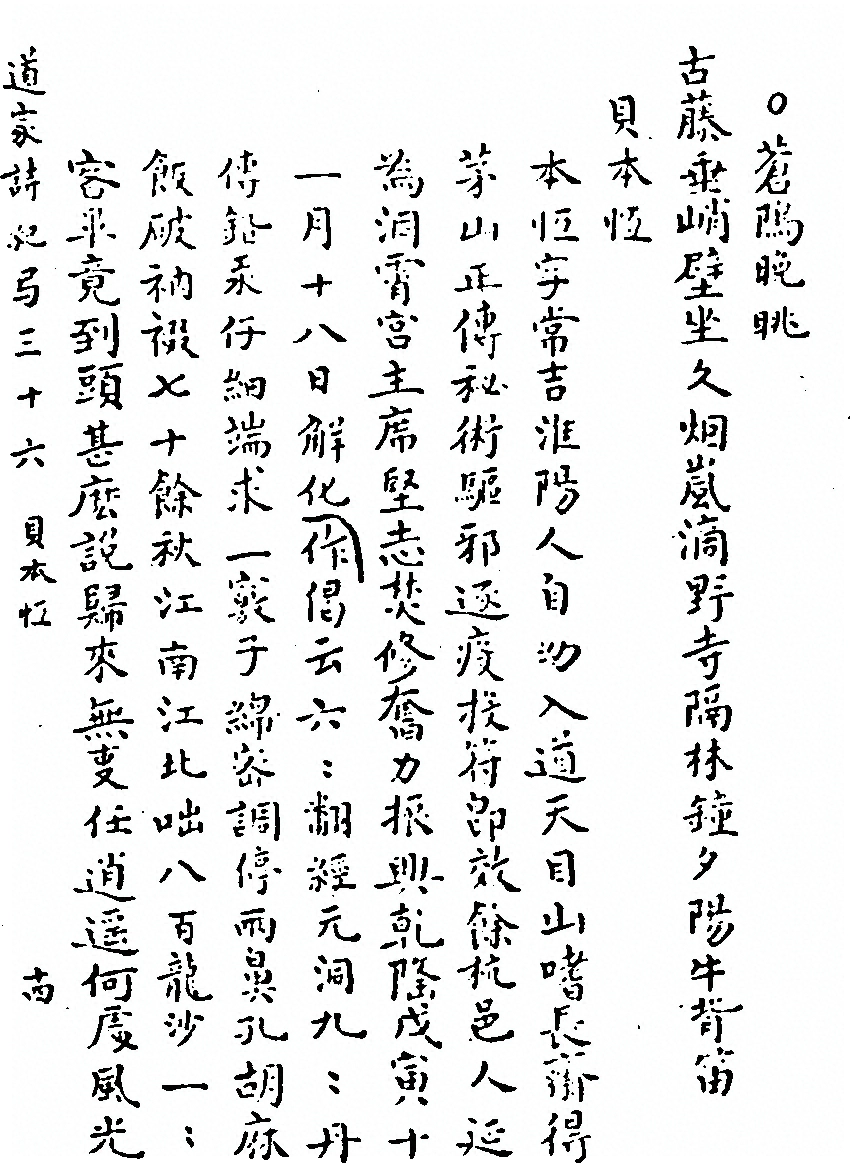 ○蒼隝晚眺
古藤垂峭壁坐久烟嵐滴野寺隔林鐘夕陽牛背笛
貝本恆
本恆字常吉淮陽人自幼入道天目山嗜長齋得
茅山正傳秘術驅邪逐疫投符即效餘杭邑人延
為洞霄宮主席堅志焚修奮力振興乾隆戊寅十
一月十八日解化作偈云六:翻經元洞九:丹
傳鉛汞仔細端求一竅子綿密調停両鼻孔胡麻
飯破衲裰七十餘秋江南江北咄八百龍沙一:
容畢竟到頭甚麽說歸來無事任逍遥何處風光
道家詩紀弓三十六 貝本恆